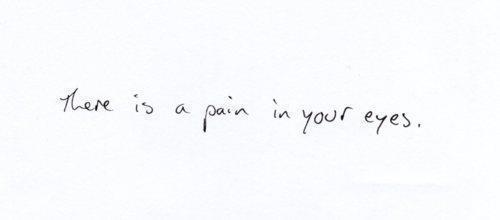 There is a pain in your eyes.